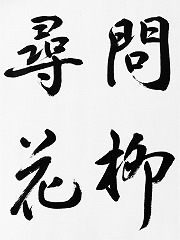 問柳
尋花